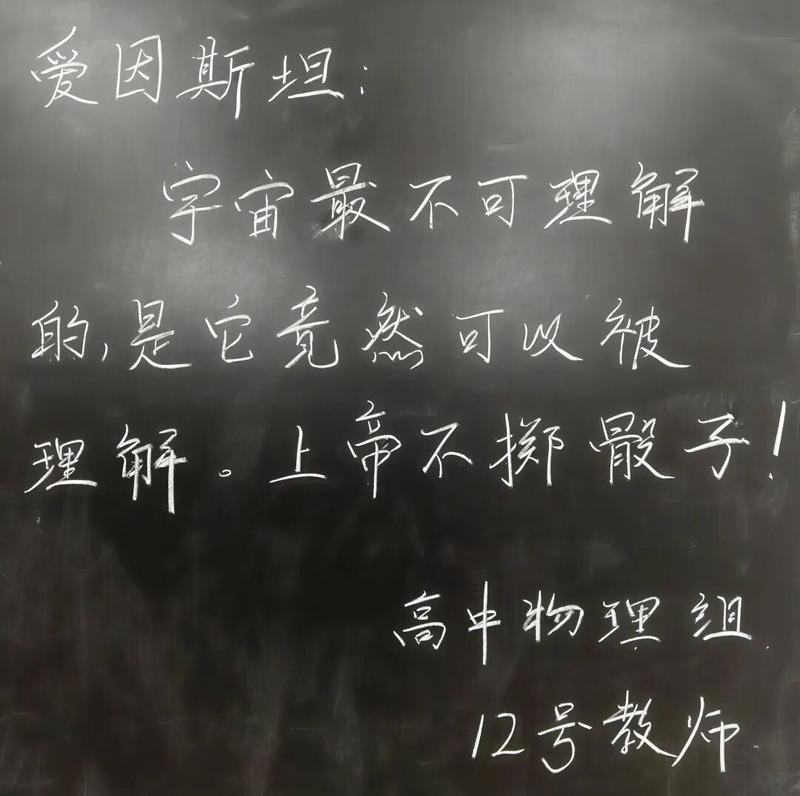 爱因斯坦:
宇宙最不可理解
的,是它竟然可以被
理解。上帝不掷骰子!
高中物理组
12号教师